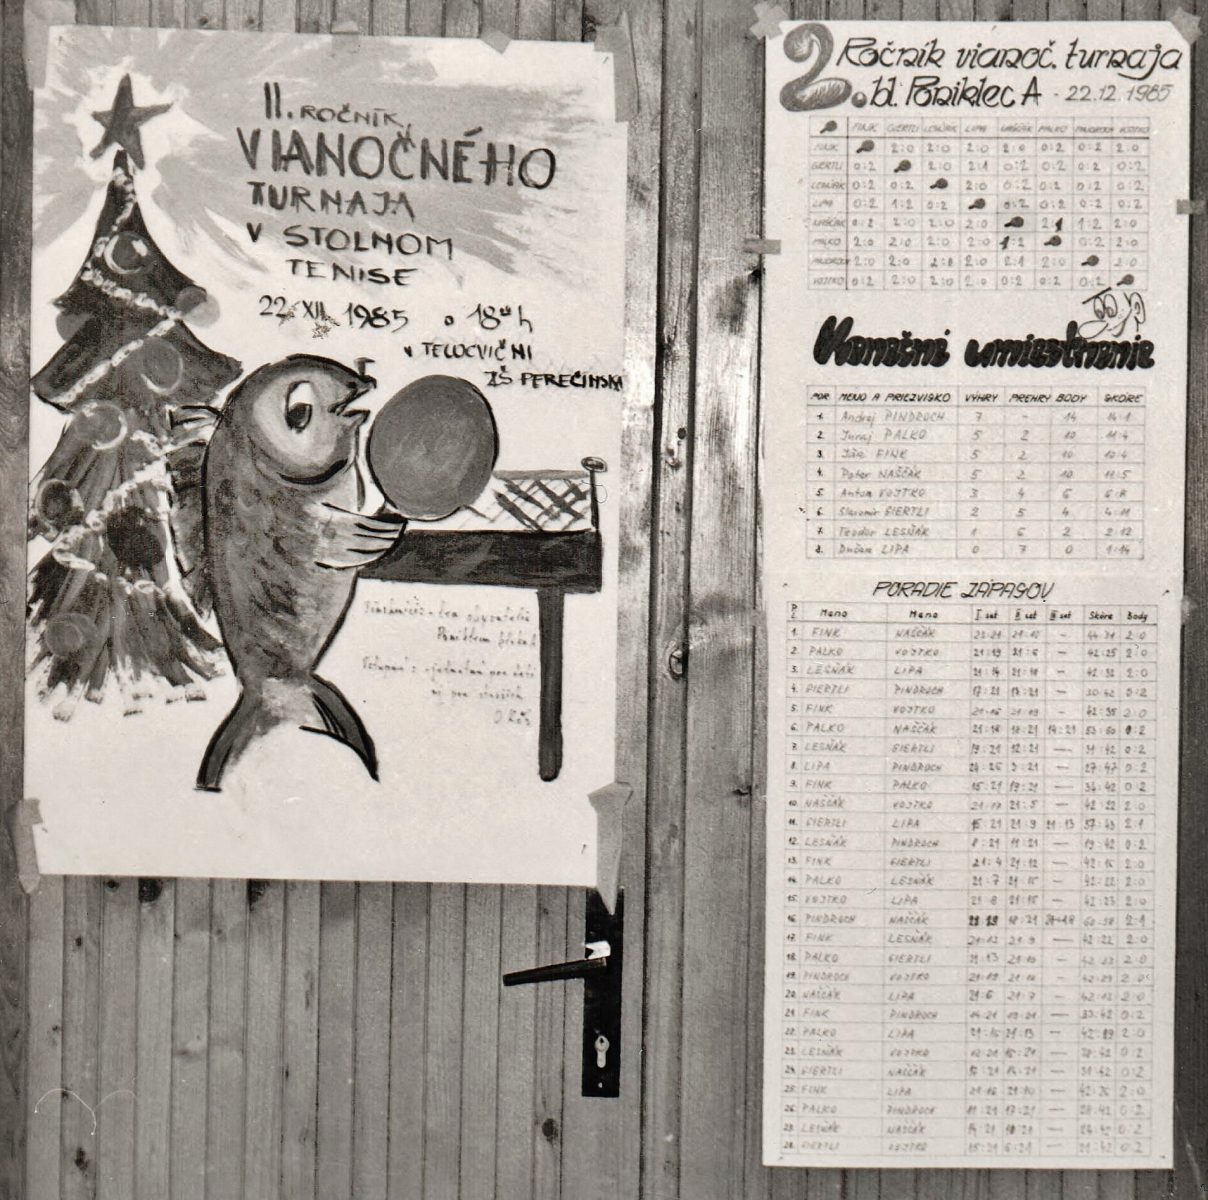 II. ROČNÍK
VIANOČNÉHO
TURNAJA
V STOLNOM
TENISE
22. XII. 1985 o 18ºº h
v TELOCVIČNI
ZŠ PEREČINSKA
2. Ročník vianoč. turnaja
bl. Poniklec A - 22.12.1985
FINK GIERTLI LESŇÁK LIPA NAŠČÁK PALKO PINDROCH VOJTKO
FINK 2:0 2:0 2:0 2:0 0:2 0:2 2:0
GIERTLI 0:2 2:0 2:1 0:2 0:2 0:2 0:2
LESŇÁK 0:2 0:2 2:0 0:2 0:2 0:2 0:2
LIPA 0:2 1:2 0:2 0:2 0:2 0:2 0:2
NAŠČÁK 0:2 2:0 2:0 2:0 2:1 1:2 2:0
PALKO 2:0 2:0 2:0 2:0 1:2 0:2 2:0
PINDROCH 2:0 2:0 2:0 2:0 2:1 2:0 2:0
VOJTKO 0:2 2:0 2:0 2:0 0:2 0:2 0:2
Konečné umiestnenie
POR MENO A PRIEZVISKO VÝHRY PREHRY BODY SKÓRE
1. Andrej PINDROCH 7 - 14 14:1
2. Juraj PALKO 5 2 10 11:4
3. FINK 5 2 10 10:4
4. Peter NAŠČÁK 5 2 10 11:5
5. Anton VOJTKO 3 4 6 6:8
6. Slavomír GIERTLI 2 5 4 4:11
7. Teodor LESŇÁK 1 6 2 2:12
8. Dušan LIPA 0 7 0 1:14
PORADIE ZÁPASOV
Meno Meno I. set II. set III. set Skóre Body
1. FINK NAŠČÁK — 2:0
2. PALKO VOJTKO — 42:25 2:0
3. LESŇÁK LIPA — 42:32 2:0
4. GIERTLI PINDROCH 17:21 13:21 — 30:42 0:2
5. FINK VOJTKO 21:16 21:19 — 42:35 2:0
6. PALKO NAŠČÁK 14:21 53:60
7. LESŇÁK GIERTLI 19:21 12:21 — 31:42 0:2
8. LIPA PINDROCH — 27:47 0:2
9. FINK PALKO 15:21 19:21 — 34:42 0:2
10. NAŠČÁK VOJTKO 21:17 21:5 — 42:22 2:0
11. GIERTLI LIPA 15:21 21:9 21:13 57:43 2:1
12. LESŇÁK PINDROCH 8:21 11:21 — 19:42 0:2
13. FINK GIERTLI 21:4 21:12 — 42:16 2:0
14. PALKO LESŇÁK 21:7 21:15 — 42:22 2:0
15. VOJTKO LIPA 21:8 21:15 — 42:23 2:0
16. PINDROCH NAŠČÁK 18:21 2:1
17. FINK LESŇÁK 21:13 21:9 — 42:22 2:0
18. PALKO GIERTLI 21:13 21:10 — 42:23 2:0
19. PINDROCH VOJTKO — 2:0
20. NAŠČÁK LIPA 21:6 21:7 — 42:13 2:0
21. FINK PINDROCH 14:21 19:21 — 33:42 0:2
22. PALKO LIPA — 2:0
23. LESŇÁK VOJTKO — 0:2
24. GIERTLI NAŠČÁK — 31:42 0:2
25. FINK LIPA 21:16 21:10 — 42:26 2:0
26. PALKO PINDROCH 11:21 17:21 — 28:42 0:2
27. LESŇÁK NAŠČÁK 14:21 10:21 — 24:42 0:2
28. GIERTLI VOJTKO 15:21 6:21 — 21:42 0:2